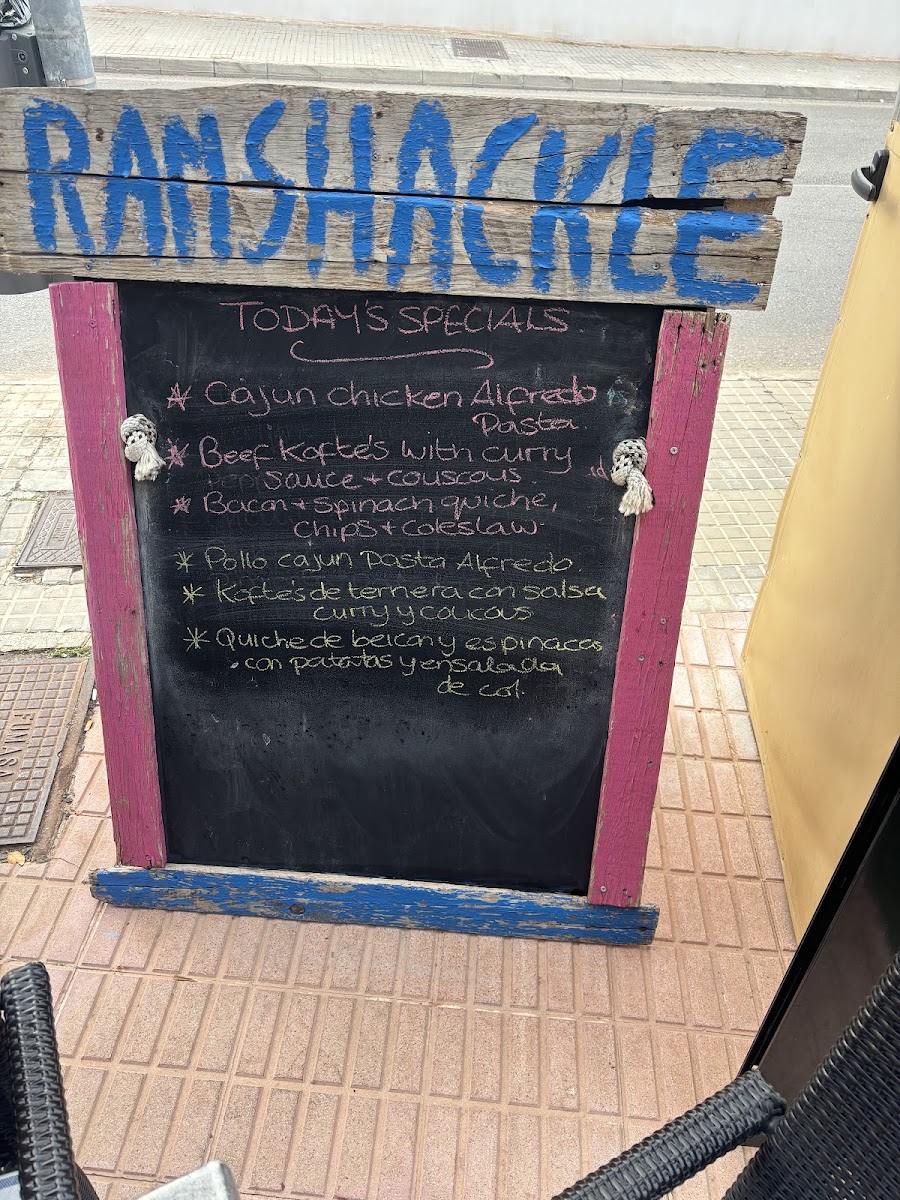 RAMSHACKLE
TODAY'S SPECIALS
* Cajun chicken Alfredo
Pasta
* Beef Kofte's with curry
sauce + couscous
* Bacon + spinach quiche,
chips + coleslaw
* Pollo cajun Pasta Alfredo.
* Kofte's de ternera con salsa
curry y coucous
* Quiche de beicon y espinacas
con patatas y ensalada
de col.
FINASA